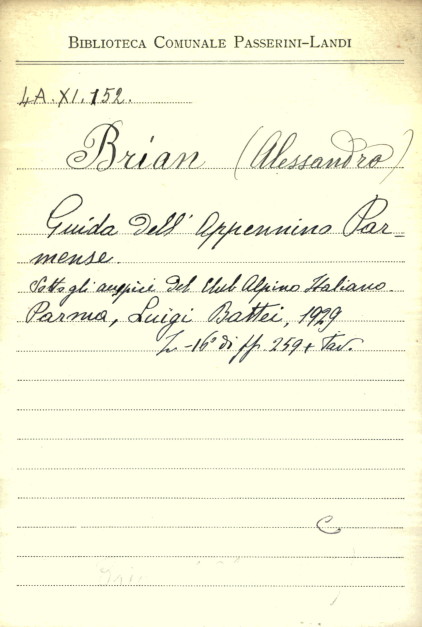 BIBLIOTECA COMUNALE PASSERINI-LANDI
4A.XI.152.
Brian (Alessandro)
Guida dell' Appennino Par-
mense.
Sotto gli auspici del Club Alpino Italiano.
Parma, Luigi Battei, 1929
-16° di pp. 259 + Tav.
C